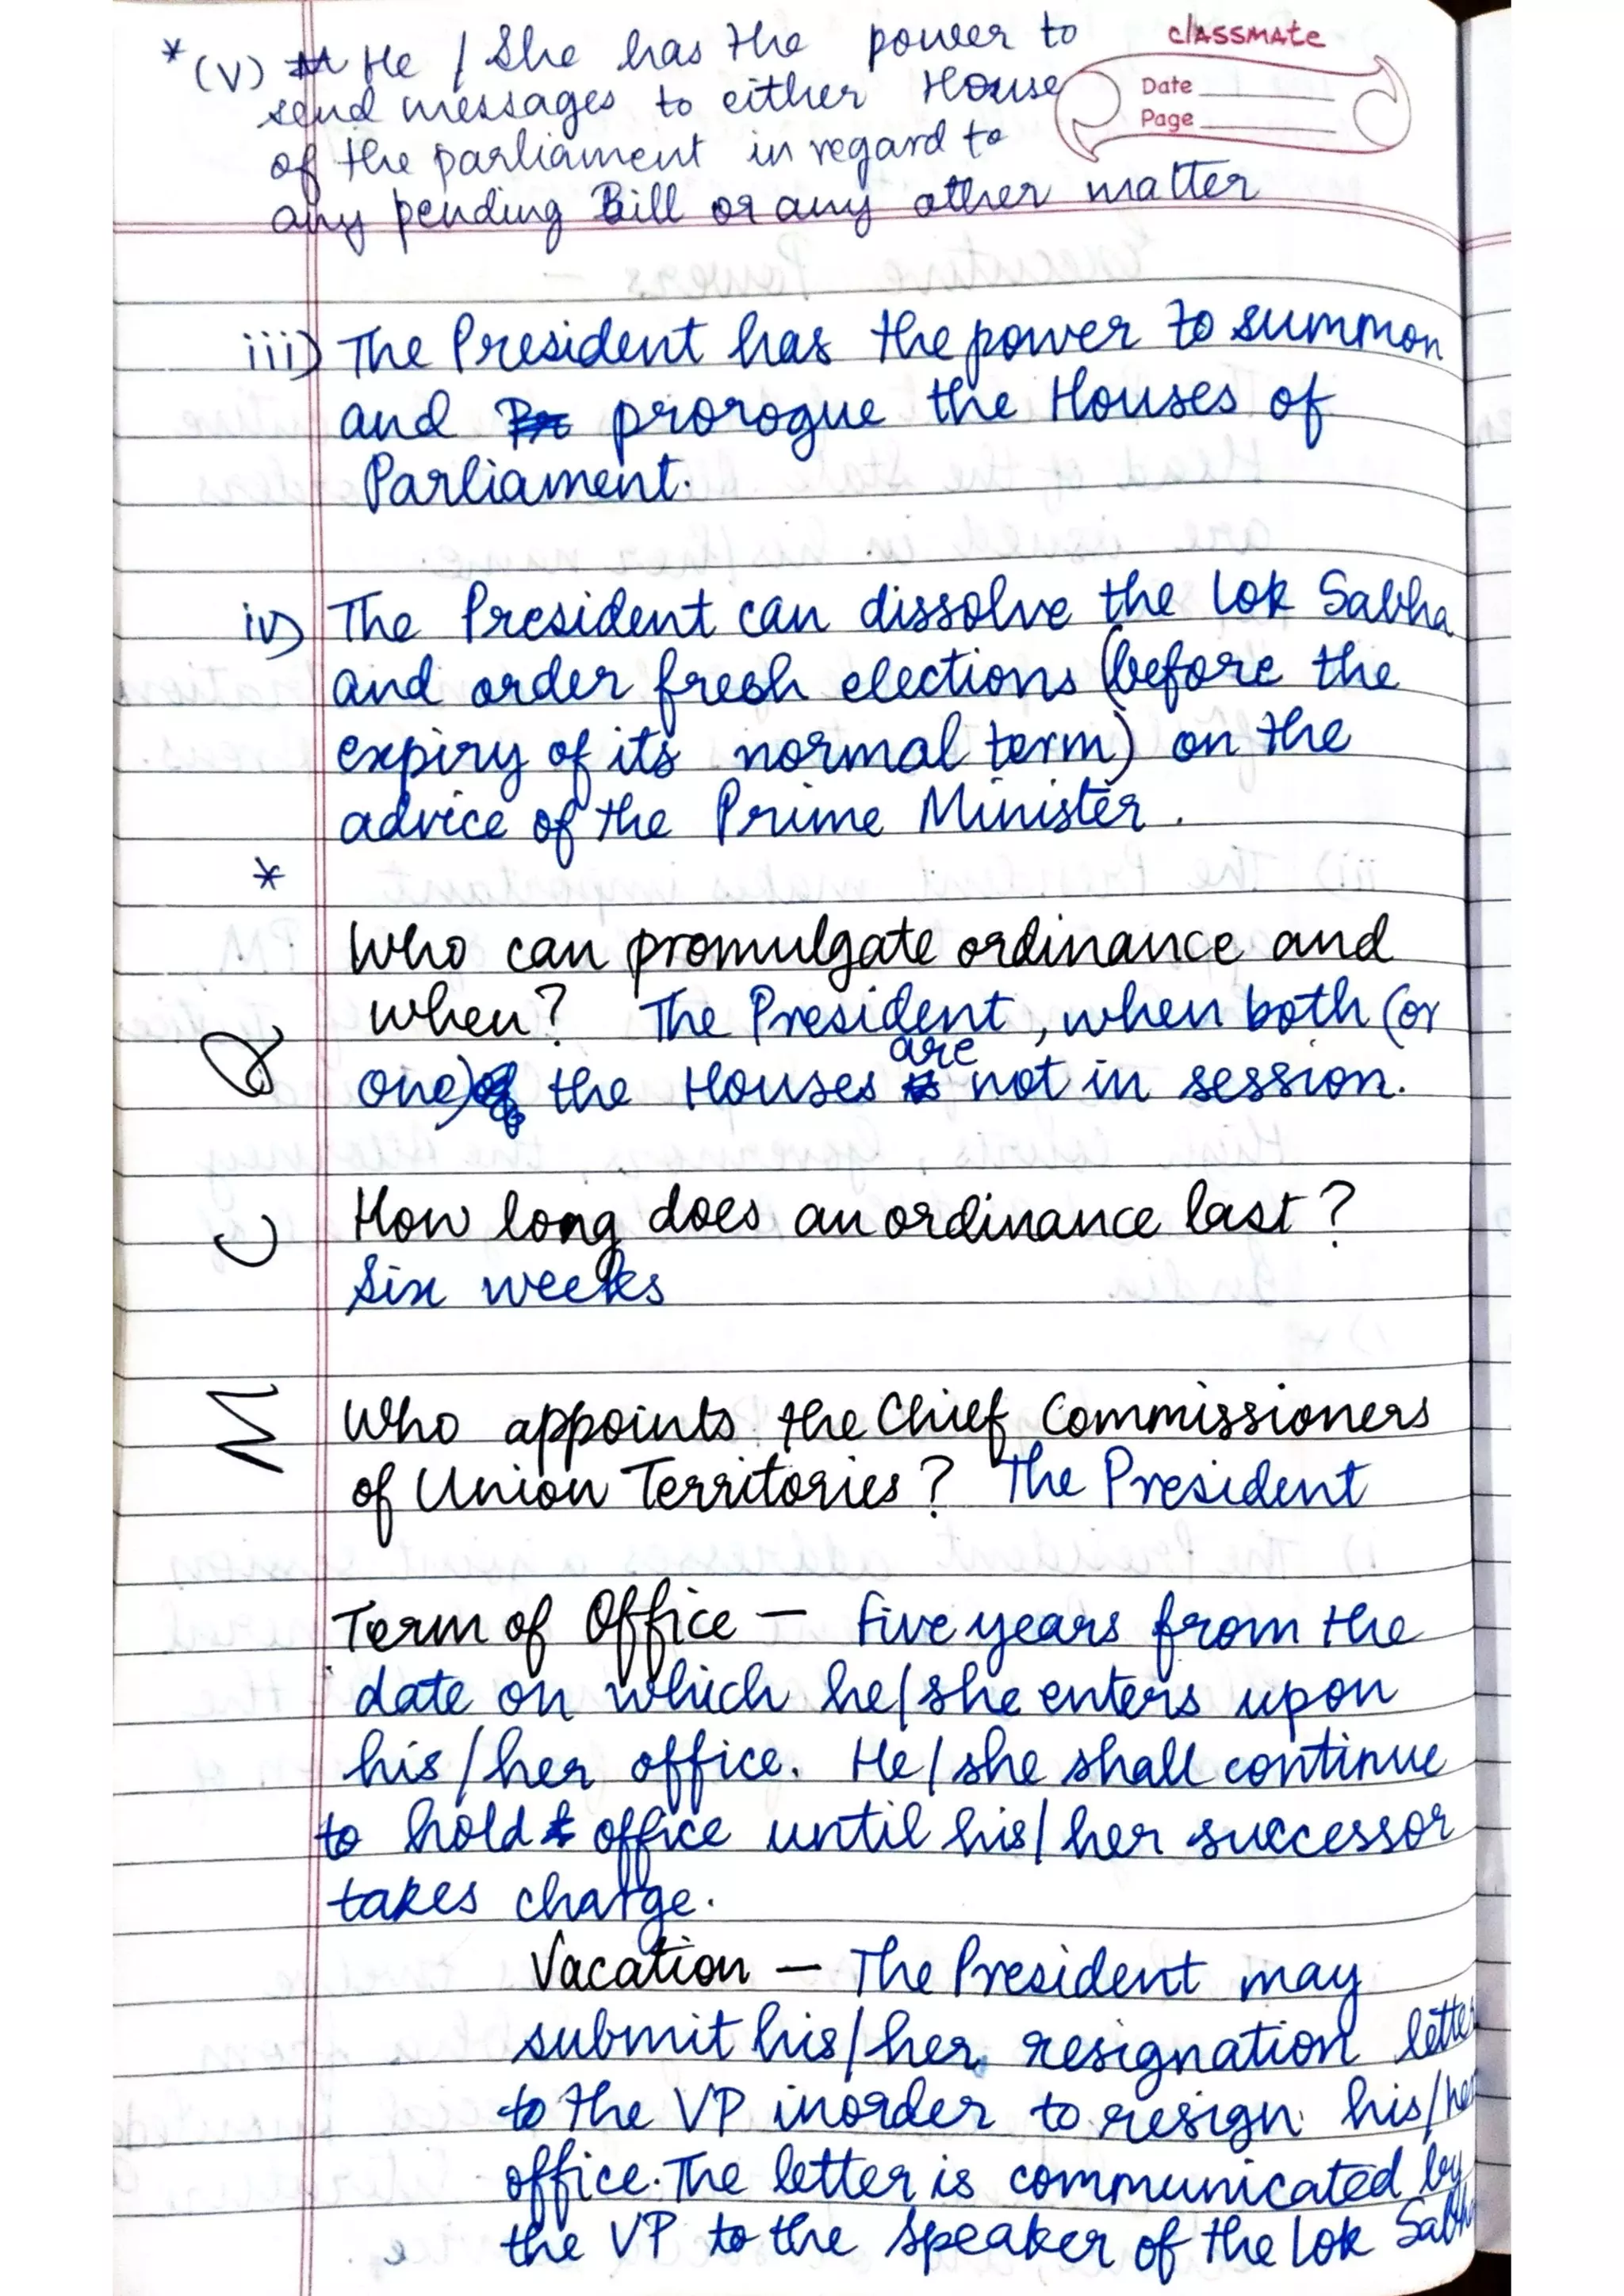 *(v) He / She has the power to
send messages to either House
of the parliament in regard to
any pending Bill or any other matter
classmate
Date
Page
iii) The President has the power to summon
and prorogue the Houses of
Parliament.
iv) The President can dissolve the Lok Sabha
and order fresh elections (before the
expiry of its normal term) on the
advice of the Prime Minister.
*
Who can promulgate ordinance and
when? The President, when both (or
one) of the Houses are not in session.
How long does an ordinance last?
Six weeks
Who appoints the Chief Commissioners
of Union Territories? The President
Term of Office — Five years from the
date on which he/she enters upon
his/her office. He/she shall continue
to hold office until his/her successor
takes charge.
Vacation — The President may
submit his/her resignation letter
to the VP inorder to resign his/her
office. The letter is communicated by
the VP to the Speaker of the Lok Sabha
M
C
Q